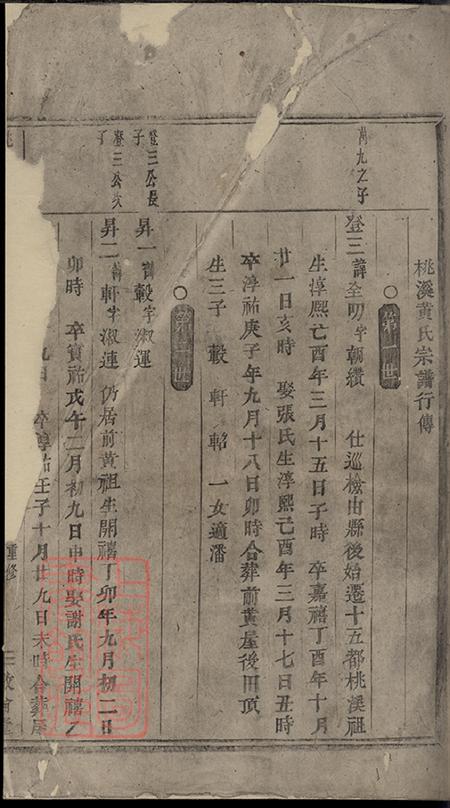 桃溪黄氏宗譜行傳
第一世
尚九之子
登三諱全叨字朝纘 仕巡檢由縣後始遷十五都桃溪祖
生淳熙己酉年三月十五日子時 卒嘉禧丁酉年十月
廿一日亥時 娶張氏生淳熙己酉年三月十七日丑時
卒淳祐庚子年九月十八日卯時合葬前黄屋後田頂
生三子 轂 軒 輅 一女適潘
第二世
登三公長子
昇一諱轂字淑運
登三公次子
昇二諱軒字淑連 仍居前黄祖生開禧丁卯年九月初二日
卯時 卒寶祐戊午二月初九日申時娶謝氏生開禧乙
九日 卒淳祐壬子十月廿九日未時合葬屋
重修
三 敦